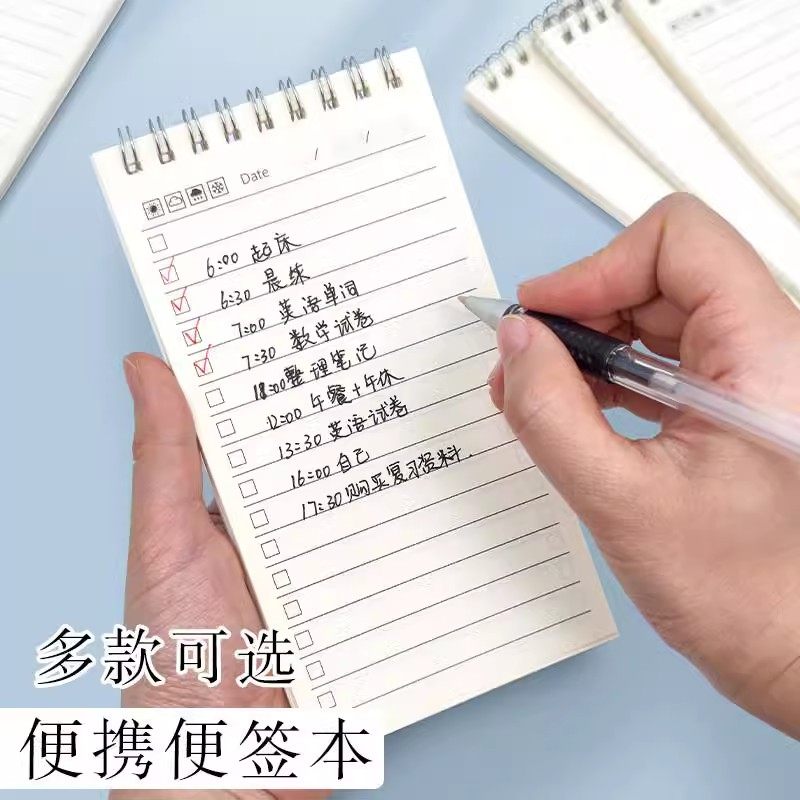 Date / /
6:00 起床
6:30 晨练
7:00 英语单词
7:30 数学试卷
整理笔记
12:00 午餐+午休
13:30 英语试卷
16:00 自己
17:30 购买复习资料.
多款可选
便携便签本